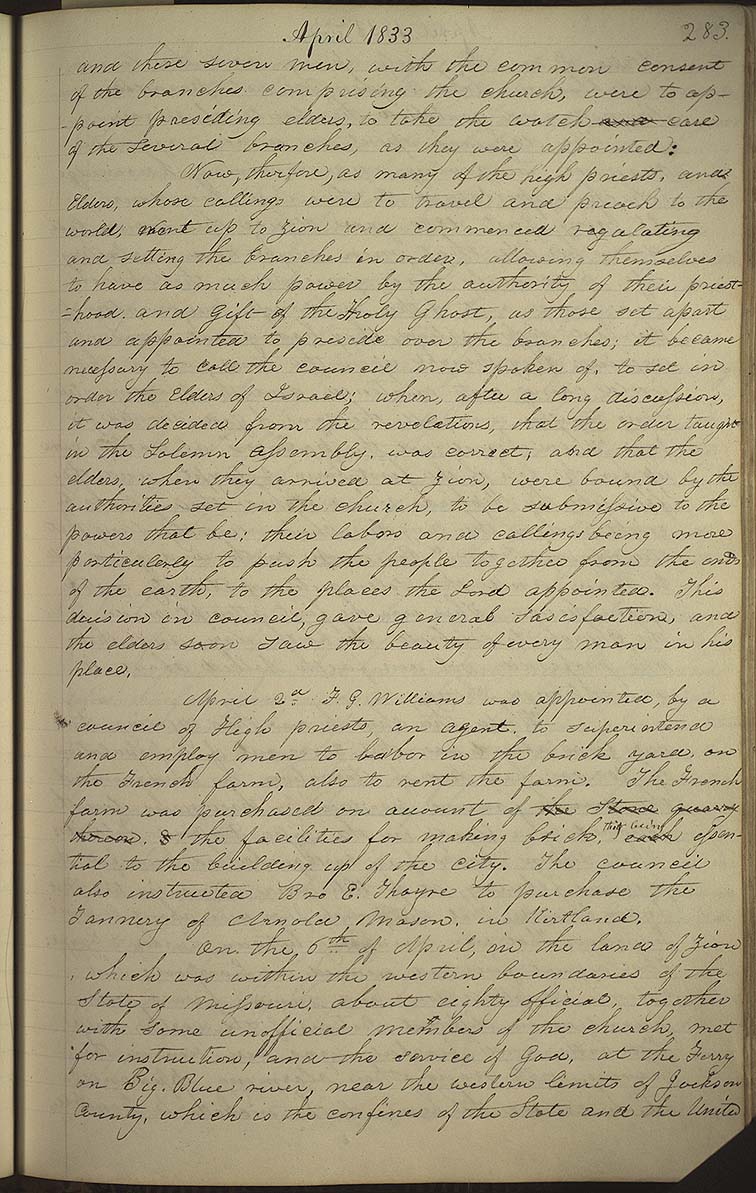 April 1833
283.
and these seven men, with the common consent
of the branches comprising the church, were to ap-
-point presiding elders, to take the watch and care
of the several branches, as they were appointed:
Now, therefore, as many of the high priests, and
Elders, whose callings were to travel and preach to the
world, went up to Zion and commenced regulating
and setting the branches in order, allowing themselves
to have as much power by the authority of their priest-
-hood and gift of the Holy Ghost, as those set apart
and appointed to preside over the branches; it became
necessary to call the council now spoken of, to set in
order the Elders of Israel; when, after a long discussion,
it was decided from the revelations, that the order taught
in the Solemn assembly, was correct; and that the
elders, when they arrived at Zion, were bound by the
authorities set in the church, to be submissive to the
powers that be: their labors and callings being more
particularly to push the people together from the ends
of the earth, to the places the Lord appointed. This
decision in council, gave general sasisfaction, and
the elders soon saw the beauty of every man in his
place.
April 2d F. G. Williams was appointed, by a
council of High priests, an agent to superintend
and employ men to labor in the brick yard, on
the French farm, also to rent the farm. The French
farm was purchased on account of the Stone quarry
thereon. & the facilities for making brick, this being each essen-
tial to the building up of the city. The council
also instructed Bro E. Thayre to purchase the
Tannery of Arnold Mason, in Kirtland.
On the 6th of April, in the land of Zion
which was within the western boundaries of the
State of Missouri, about eighty official, together
with some unofficial members of the church, met
for instruction, and the service of God, at the Ferry
on Big Blue river, near the western limits of Jackson
County, which is the confines of the State and the United